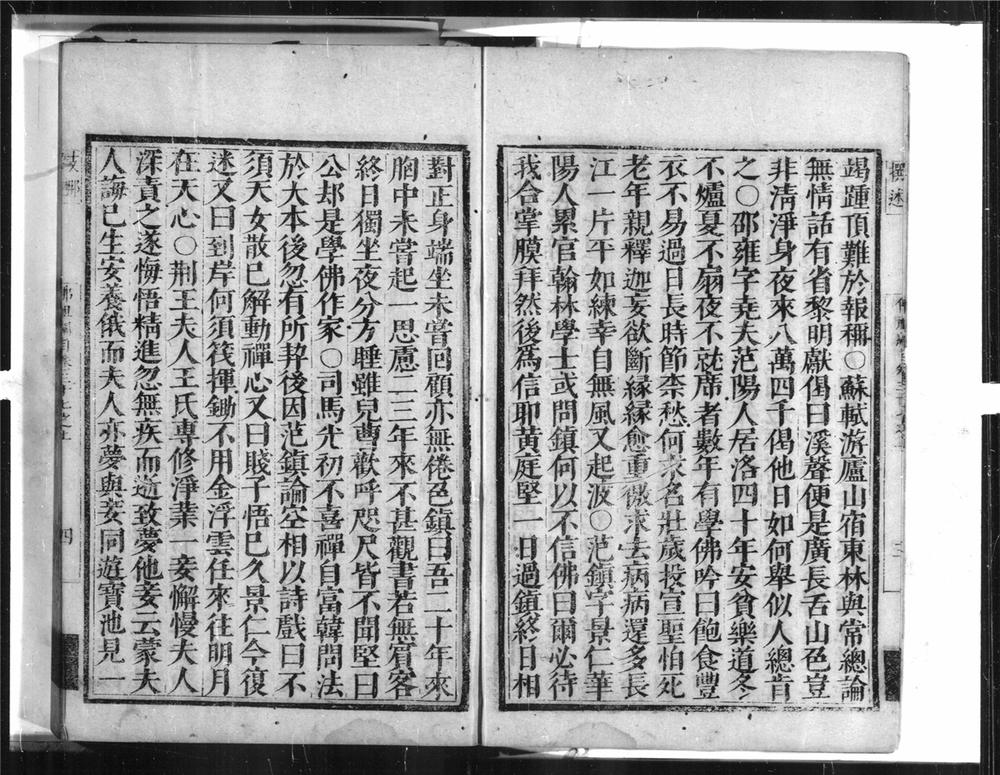 撰述
竭踵頂難於報稱○蘇軾游廬山宿東林與常總論
無情話有省黎明獻偈曰溪聲便是廣長舌山色豈
非淸淨身夜來八萬四千偈他日如何舉似人總肯
之○邵雍字堯夫范陽人居洛四十年安貧樂道冬
不爐夏不扇夜不就席者數年有學佛吟曰飽食豐
衣不易過日長時節柰愁何求名壯歲投宣聖怕死
老年親釋迦妄欲斷緣緣愈重徼求去病病還多長
江一片平如練幸自無風又起波○范鎮字景仁華
陽人累官翰林學士或問鎮何以不信佛曰爾必待
我合掌膜拜然後爲信耶黃庭堅一日過鎮終日相
對正身端坐未嘗回顧亦無倦色鎮曰吾二十年來
胸中未嘗起一思慮二三年來不甚觀書若無賓客
終日獨坐夜分方睡雖兒曹歡呼咫尺皆不聞堅曰
公却是學佛作家○司馬光初不喜禪自富韓問法
於大本後忽有所契後因范鎮論空相以詩戲曰不
須天女散已解動禪心又曰賤子悟已久景仁今復
迷又曰到岸何須筏揮鋤不用金浮雲任來往明月
在天心○荆王夫人王氏專修淨業一妾懈慢夫人
深責之遂悔悟精進忽無疾而逝致夢他妾云蒙夫
人誨已生安養俄而夫人亦夢與妾同遊寶池見一
四